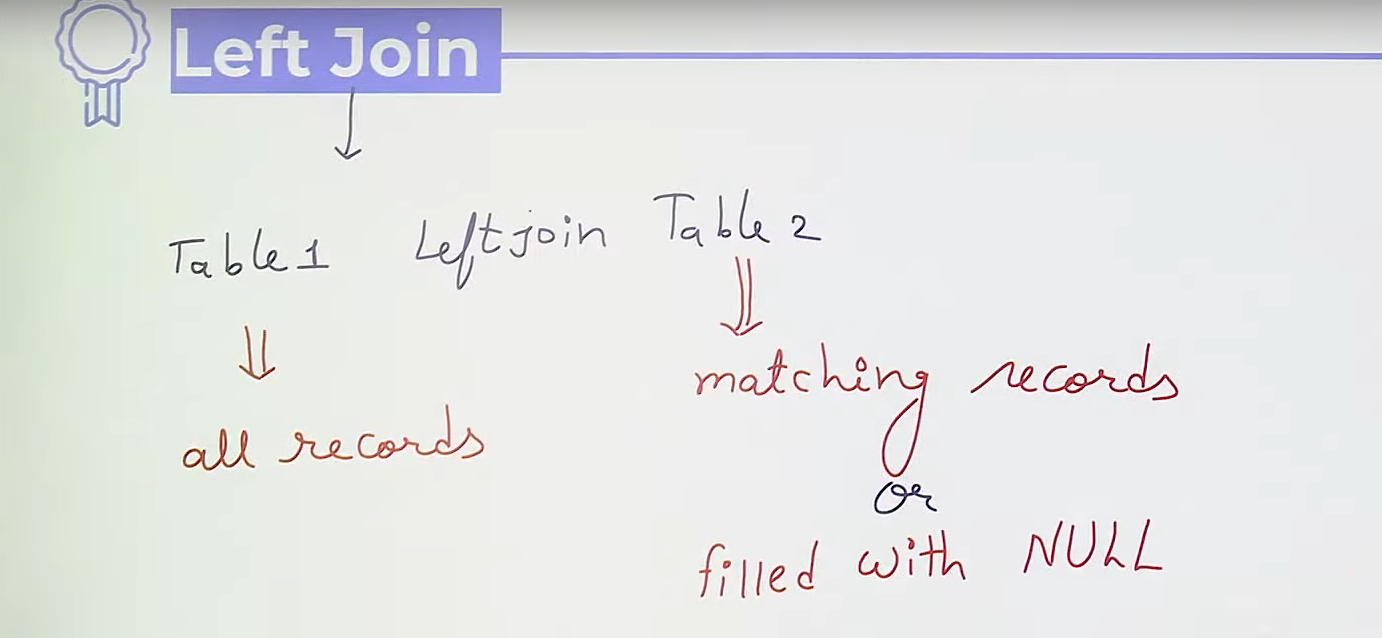 Left Join
Table 1 Left join Table 2
all records
matching records
or
filled with NULL